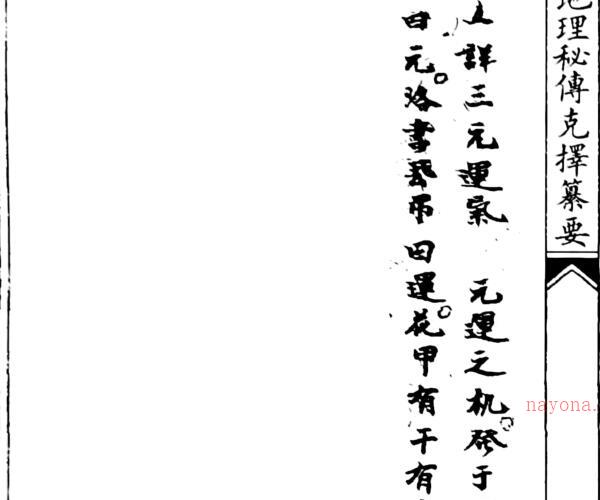 地理秘傳克擇纂要
詳三元運氣 元運之机。發于
曰元。洛書飛吊曰運。花甲有干有
nayona.